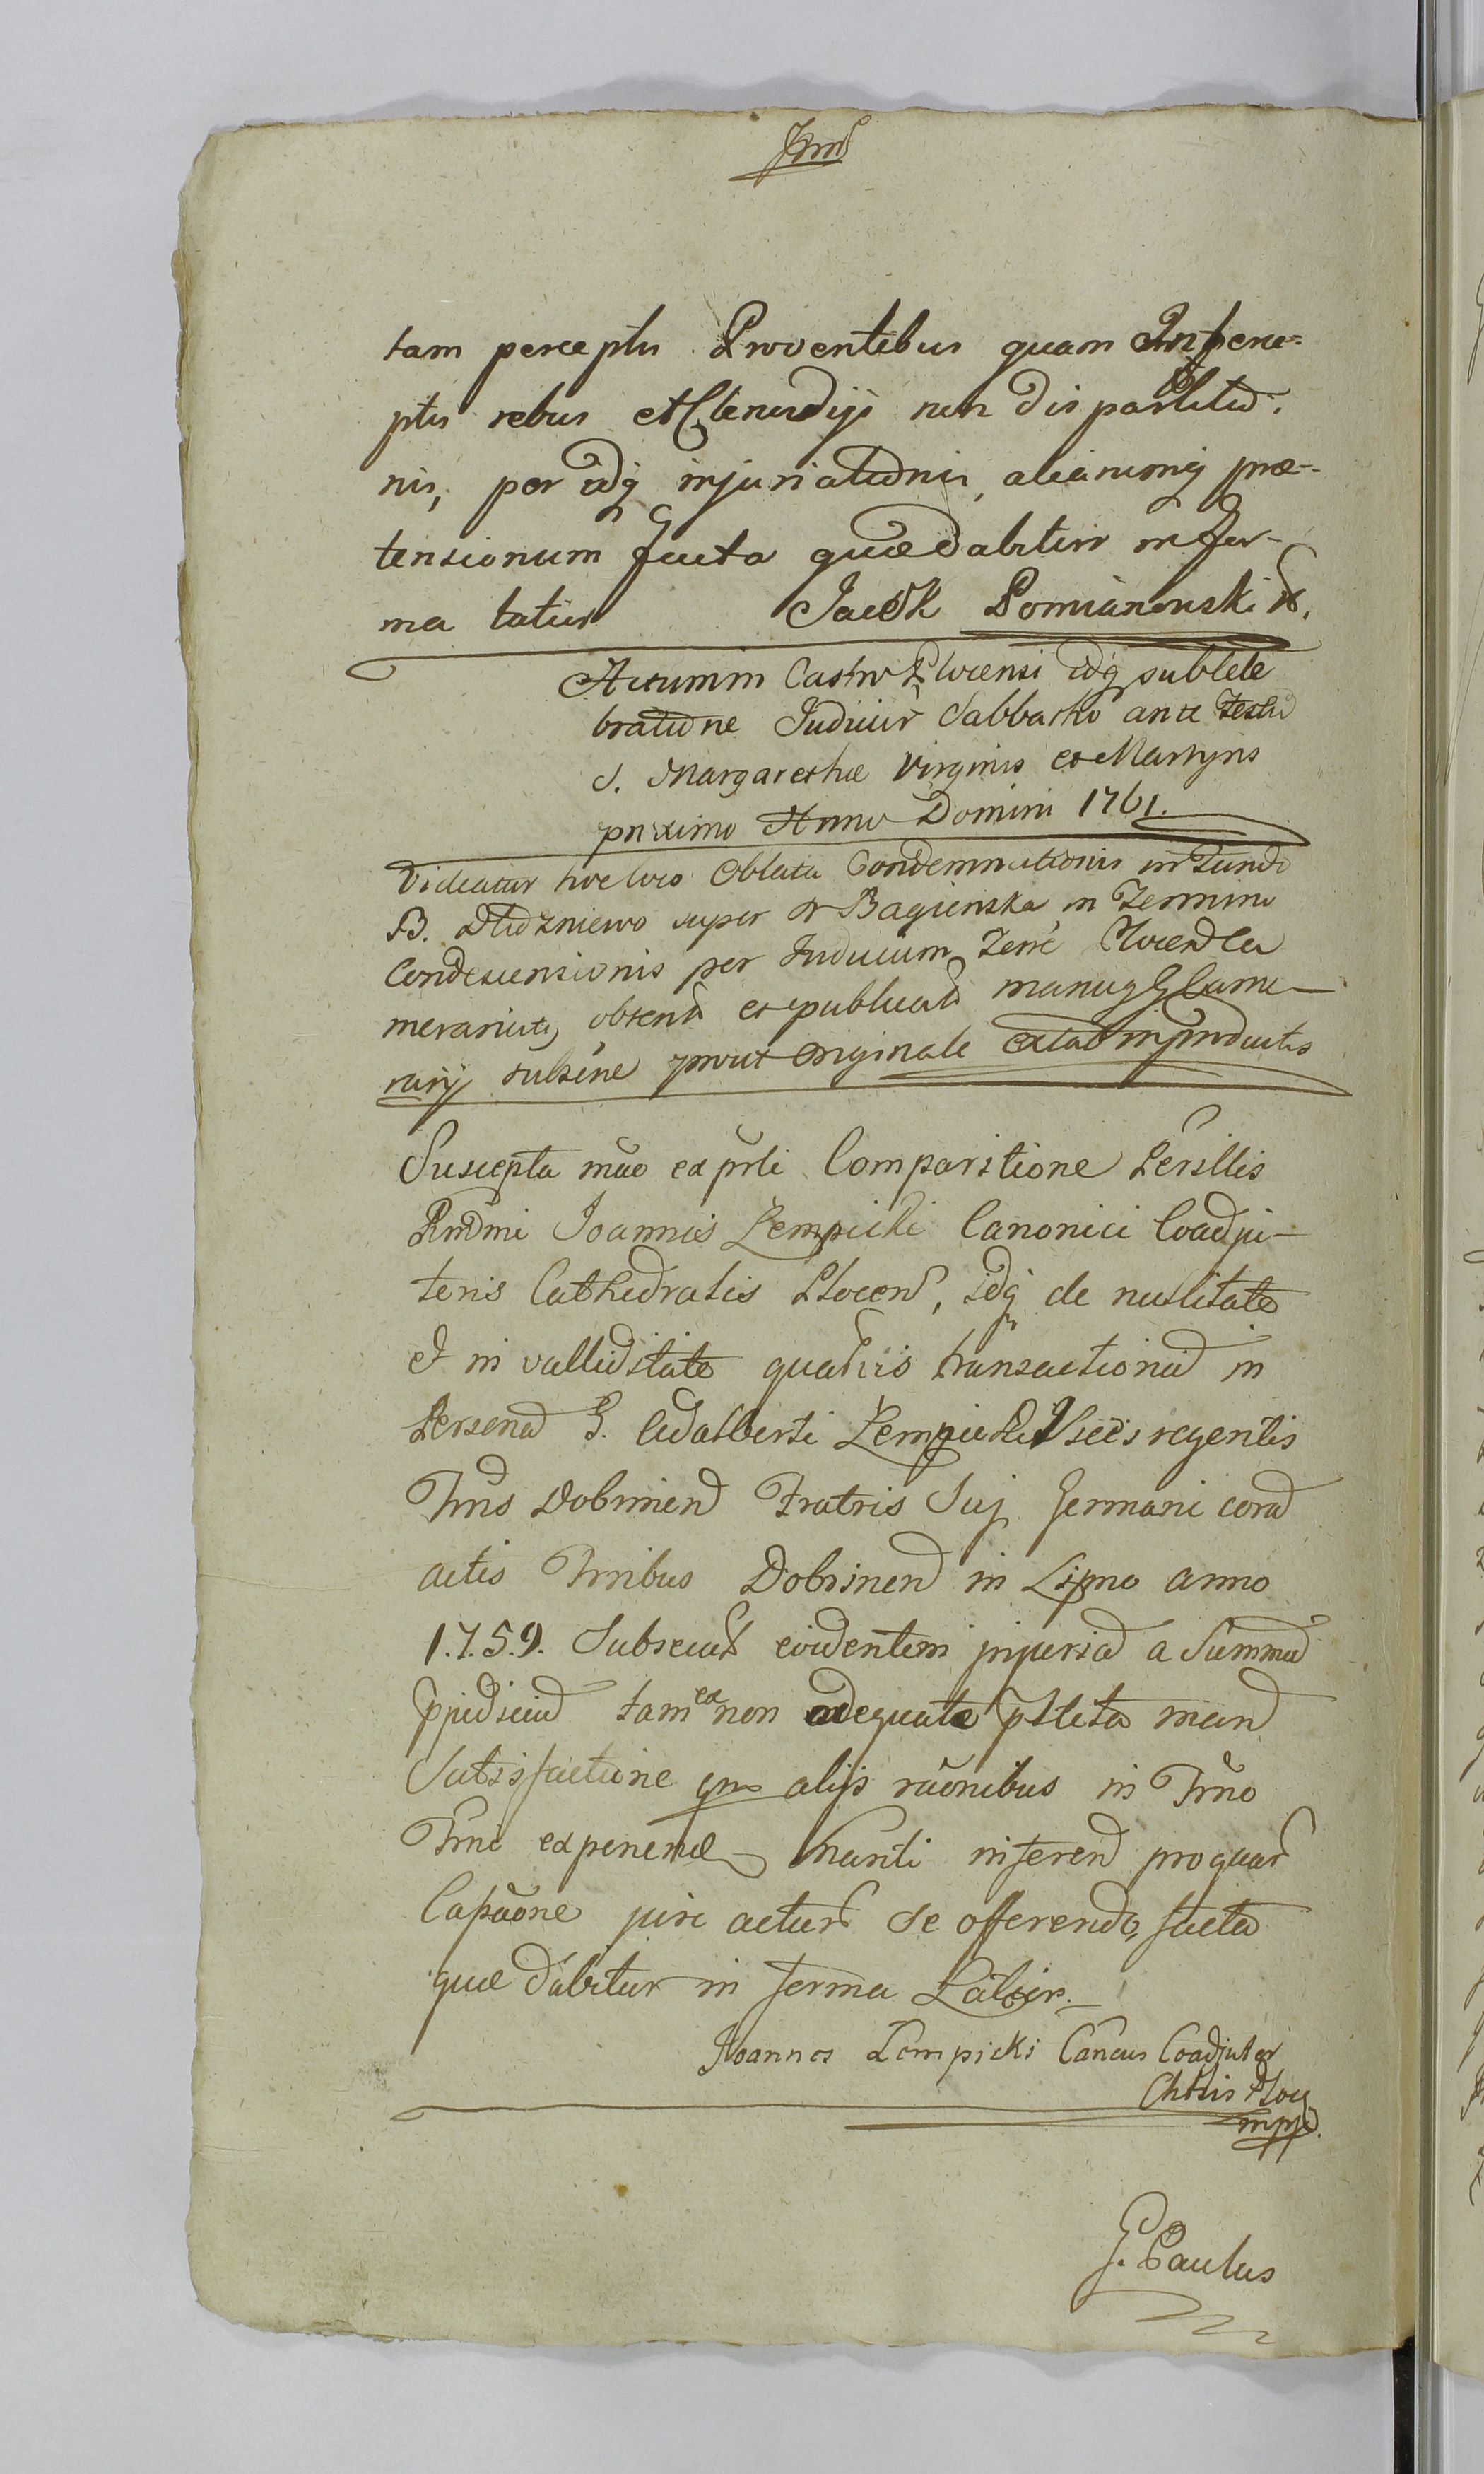 tam perceptis Proventibus quam
ptis rebus et Clenodijs non dispartitio-
nis, per idq injuriationis, aliarumq præ-
tensionum facta quæ dabitur in for-
ma latior Jacek Pomianowski
Actum in Castro Plocensi idq sub Cele
bratione Judicior Sabbatho ante Festu
S. Margarethæ Virginis et Martyris
proximo Anno Domini 1761.
Videatur hoc loco Oblata Condemnationis in Fundo
B. Dłużniewo super Bagienska in Termino
Condescensionis per Judicium Terre Plocen Ca
merariale, obtent et publicat manuq G Came-
rarij subscne prout Originale extat in productis
Suscepta mae ex prti Comparitione Perillis
Rndmi Joannis Łempicki Canonici Coadju-
toris Cathedralis Plocen, idq de nullitate
et in valliditate quarvis transactionu in
Persona G. Adalberti Łempicki Vsces regentis
Trris Dobrinen Fratris Suj Germani cora
actis Trribus Dobrinen in Lipno anno
1.7.5.9. Subsecut evidentem injuria a Summa
tam ex non adequate pstita mean
Satisfactione qm alijs raonibus in Trno
Trno exponend inferen pro quar
Capaone jure actur se offerendo, facta
quæ dabitur in forma Latior.
Joannes Łempicki Cancus Coadjutor
Chtlis Ploc
mpp.
G. Paulus